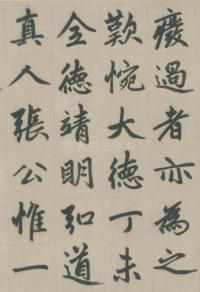 癈過者亦為之
歎惋大德丁未
全德靖明弘道
真人張公惟一